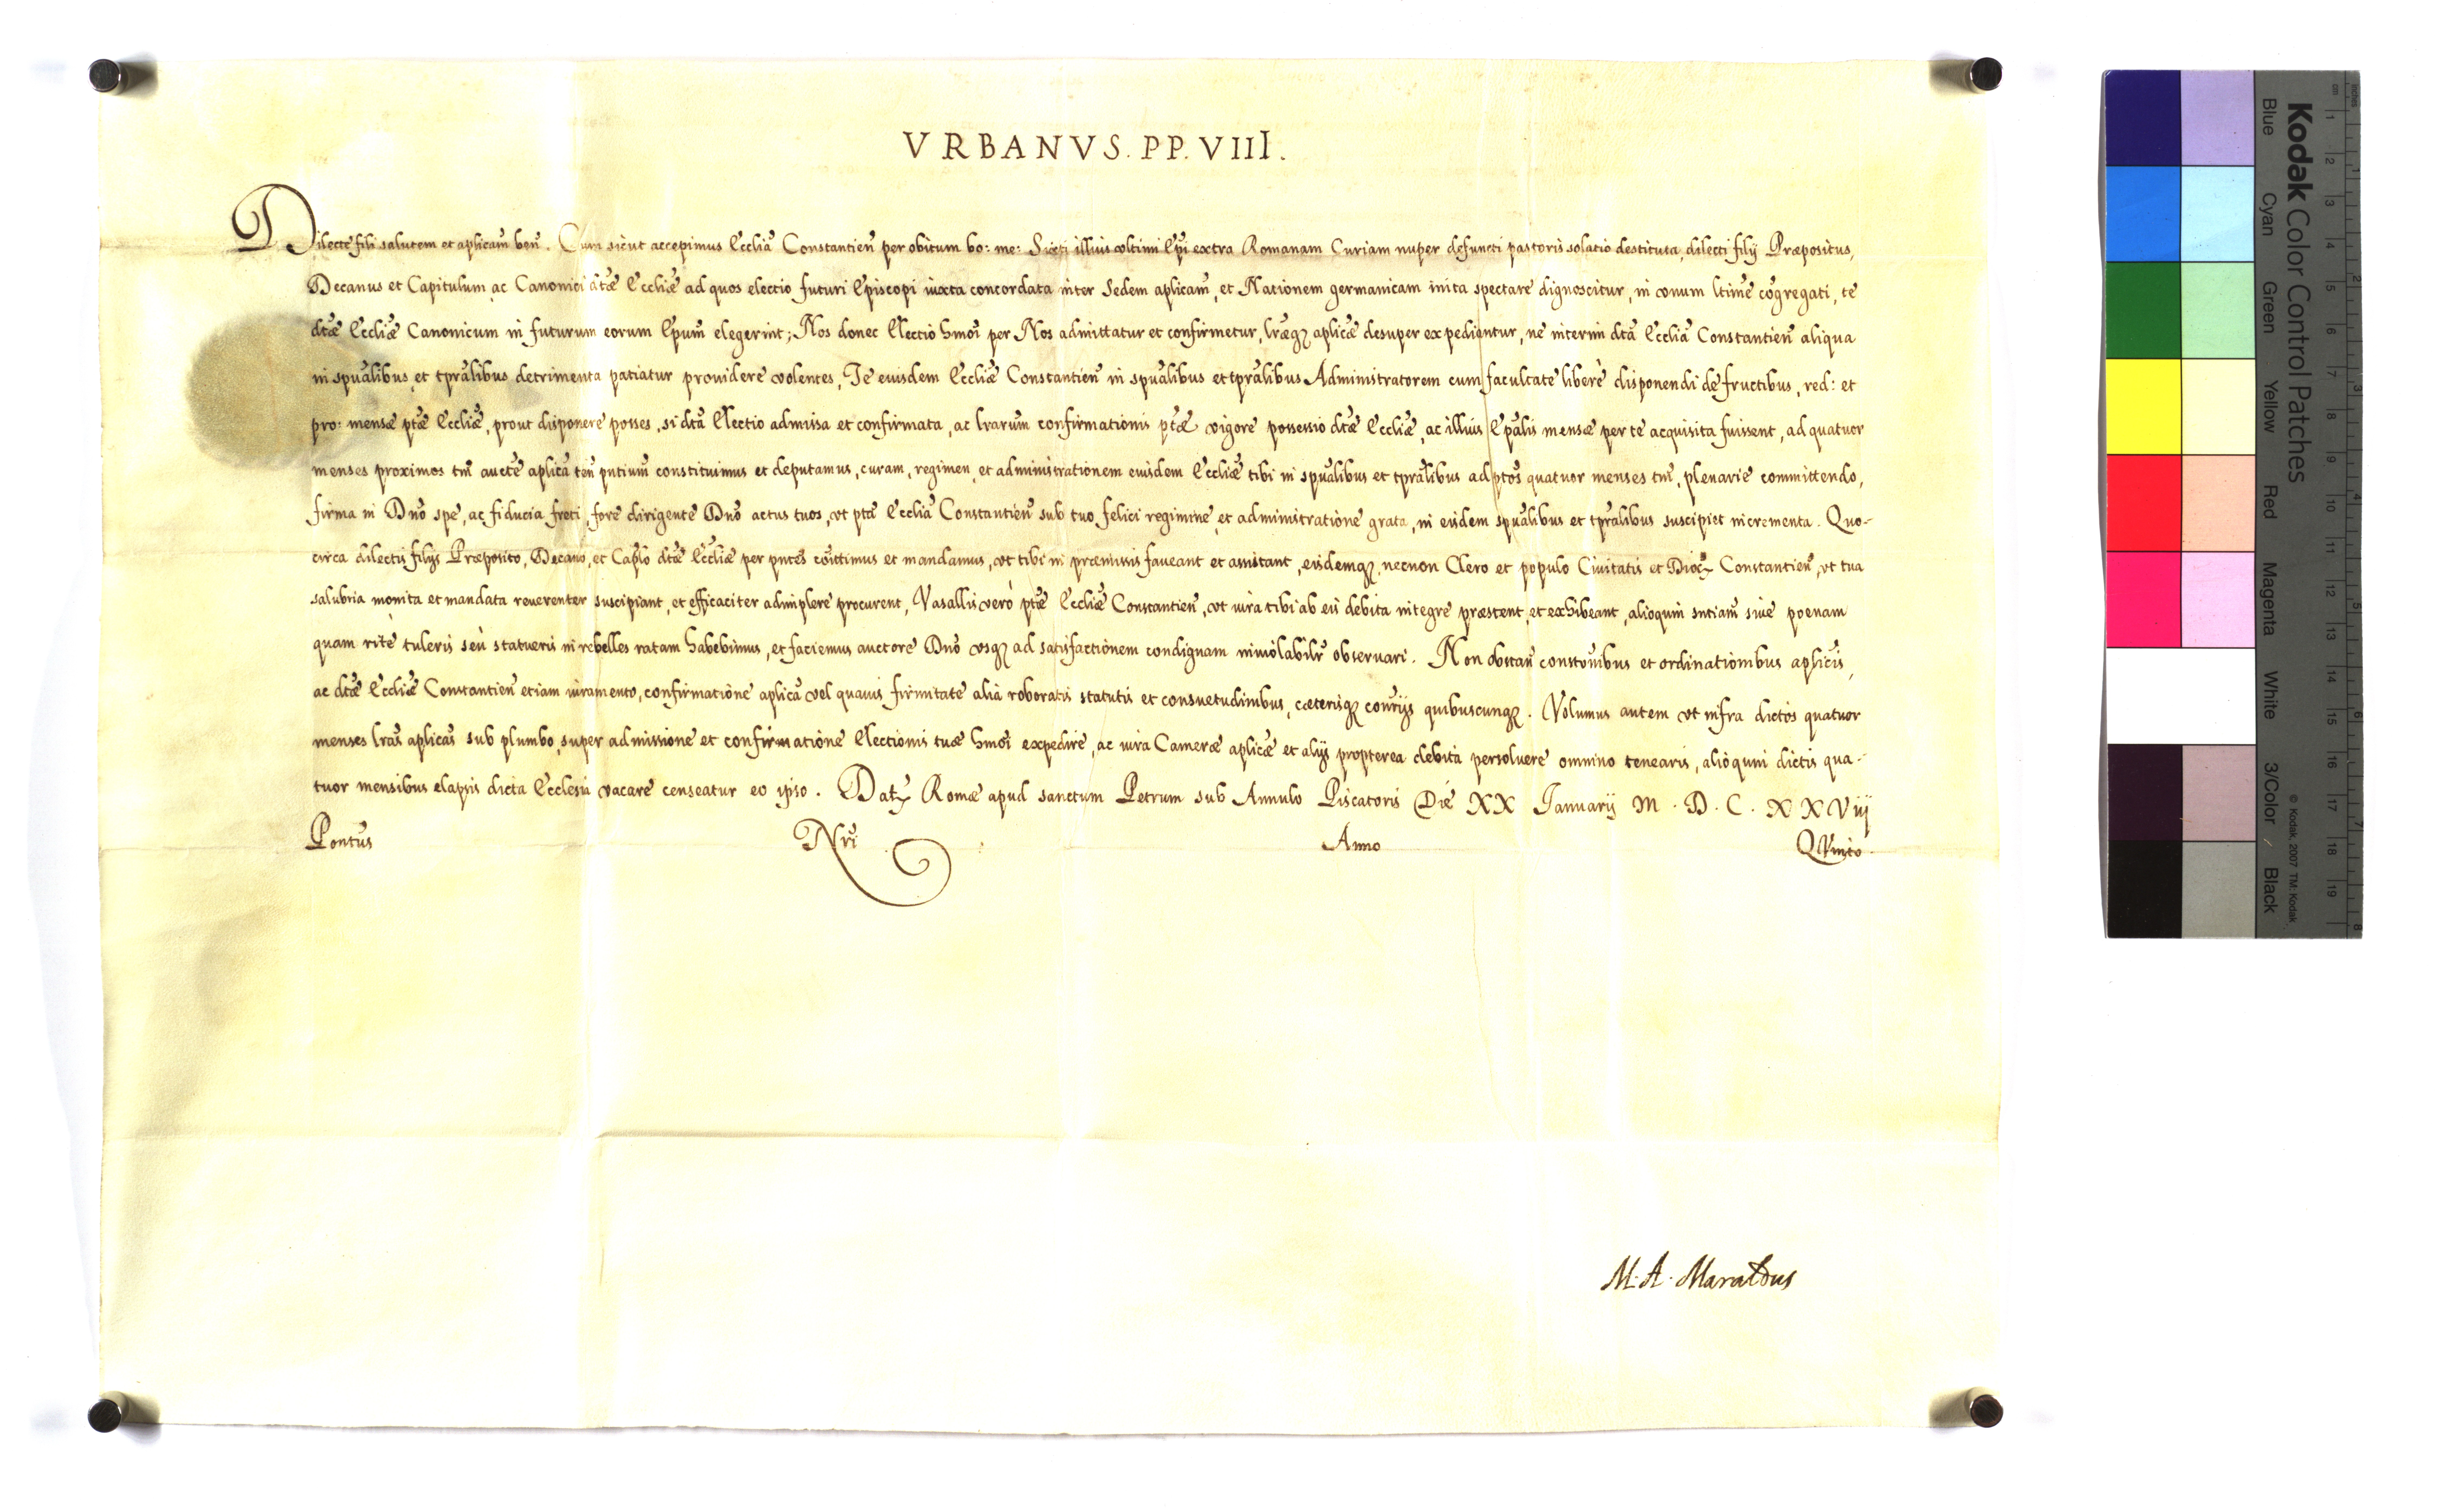 VRBANVS. PP. VIII.
Dilecte fili salutem et aplicam ben. Cum sicut accepimus Ecclia Constantien per obitum bo: me: Sixti illius vltimi Epi extra Romanam Curiam nuper defuncti pastoris solatio destituta, dilecti filij Præpositus,
Decanus et Capitulum ac Canonici dtæ Eccliæ ad quos electio futuri Episcopi iuxta concordata inter Sedem aplicam, et Nationem germanicam inita spectare dignoscitur, in vnum ltime cogregati, te
dtæ Eccliæ Canonicum in futurum eorum Epum elegerint; Nos donec Electio hmoi per Nos admittatur et confirmetur, lræq aplicæ desuper expediantur, ne interim dta Ecclia Constantien aliqua
in spualibus et tpralibus detrimenta patiatur prouidere volentes, Te eiusdem Eccliæ Constantien in spualibus et tpralibus Administratorem cum facultate libere disponendi de fructibus, red: et
pro: mensæ ptæ Eccliæ, prout disponere posses, si dta Electio admissa et confirmata, ac lrarum confirmationis ptæ vigore possessio dtæ Eccliæ, ac illius Epalis mensæ per te acquisita fuissent, ad quatuor
menses proximos tm aucte aplica ten pntium constituimus et deputamus, curam, regimen, et administrationem eiusdem Eccliæ tibi in spualibus et tpralibus ad ptos quatuor menses tm, plenarie committendo,
firma in Dno spe, ac fiducia freti, fore dirigente Dno actus tuos, vt pta Ecclia Constantien sub tuo felici regimine, et administratione grata, in eisdem spualibus et tpralibus suscipiet incrementa. Quo-
circa dilectis filijs Præposito, Decano, et Caplo dtæ Eccliæ per pntes comittimus et mandamus, vt tibi in præmissis faueant et assistant, eisdemq, necnon Clero et populo Ciuitatis et Dioc Constantien, vt tua
salubria monita et mandata reuerenter suscipiant, et efficaciter adimplere procurent, Vasallis vero ptæ Eccliæ Constantien, vt iura tibi ab eis debita integre præstent, et exhibeant, alioquin sntiam siue poenam
quam rite tuleris seu statueris in rebelles ratam habebimus, et faciemus auctore Dno vsq ad satisfactionem condignam inuiolabilr obseruari. Non obstan constonibus et ordinationibus aplicis,
ac dtæ Eccliæ Constantien etiam iuramento, confirmatione aplica vel quauis firmitate alia roboratis statutis et consuetudinibus, cæterisq contrijs quibuscunq. Volumus autem vt infra dictos quatuor
menses lras aplicas sub plumbo, super admissione et confirmatione Electionis tuæ hmoi expedire, ac iura Cameræ aplicæ et alijs propterea debita persoluere omnino tenearis, alioquin dictis qua-
tuor mensibus elapsis dicta Ecclesia vacare censeatur eo ipso. Dat Romæ apud sanctum Petrum sub Annulo Piscatoris Die XX Januarij M. D. C. XXViij
Pontus Nri Anno QVinto
M. A. Maraldus
Kodak Color Control Patches
Blue Cyan Green Yellow Red Magenta White 3/Color Black
© Kodak, 2007 TM: Kodak
cm 1 2 3 4 5 6 7 8 9 10 11 12 13 14 15 16 17 18 19
inches 1 2 3 4 5 6 7 8